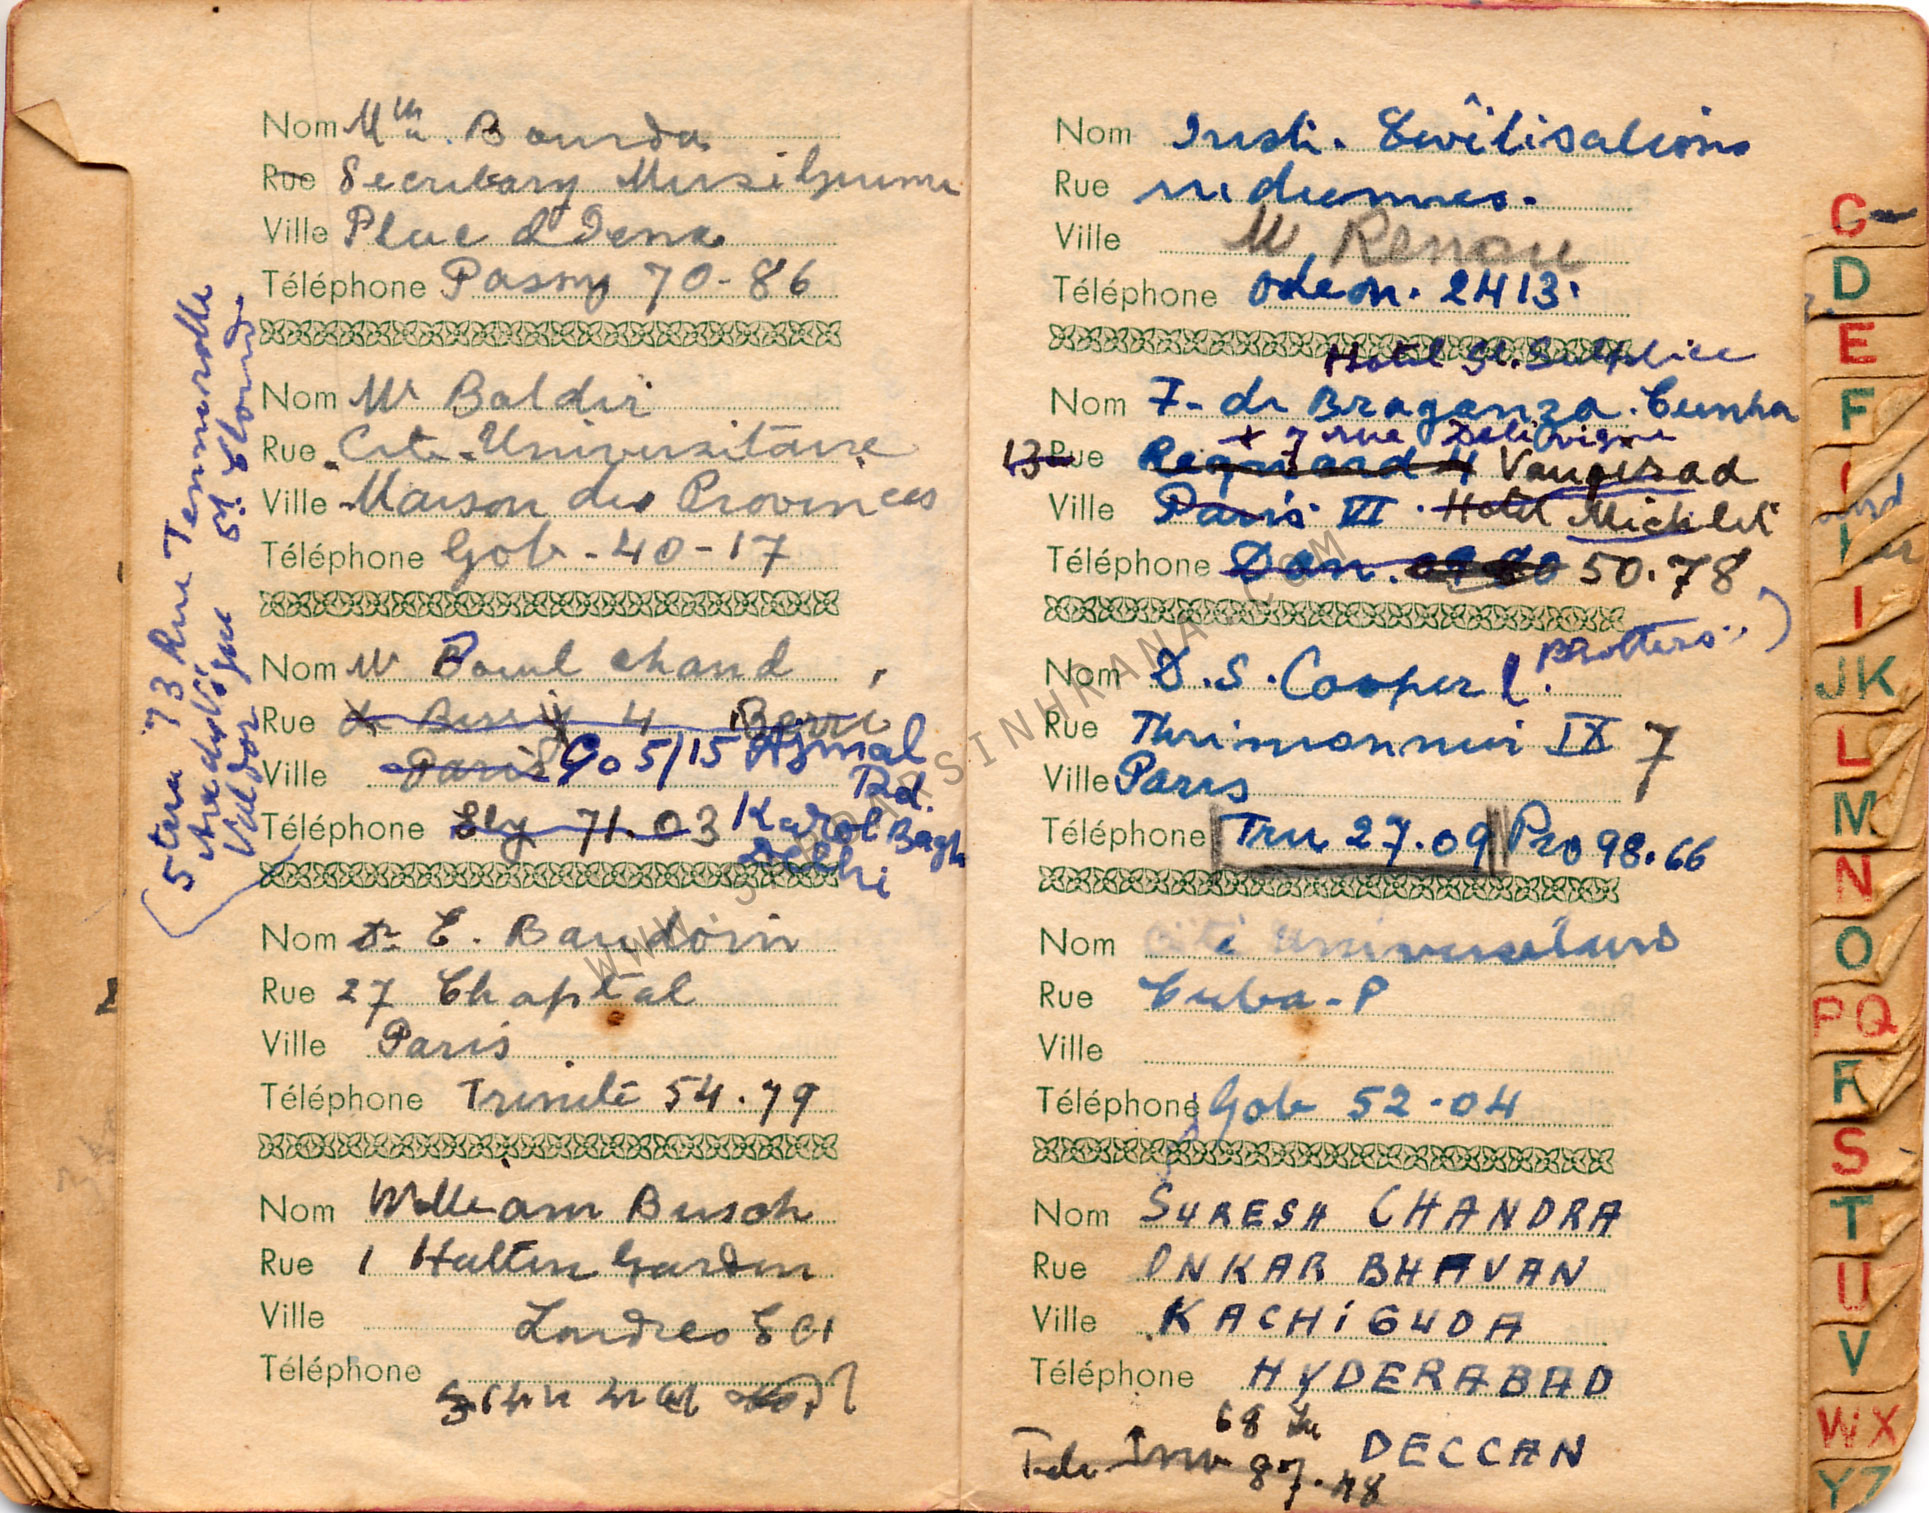 Nom Mlle. Bourda
Rue Secretary Musi Guime
Ville Place d Iena
Téléphone Passy 70-86
Nom Mr Baldir
Rue Cité-Universitaire
Ville Maison des Provinces
Téléphone Gob-40-17
Nom Mr Boul chand
Rue de Berri 4 Berri
Ville Paris Go 5/15 Ajmal
Rd.
Téléphone Ely 71.03 Karol Bagh
Delhi
Nom Dr E. Baudoin
Rue 27 Chaptal
Ville Paris
Téléphone Trinité 54.79
Nom William Busch
Rue 1 Hatten Garden
Ville Londres EC1
Téléphone
73 Rue
Valdor St Cloud
Nom Insti. Civîlisations
Rue indiennes.
Ville Mr Renou
Téléphone Odeon. 2413.
Hotel St. Sulpice
Nom F- de Braganza. Cunha
+ 7 rue Delavigne
13 Rue Regnard 4 Vaugirad
Ville Paris VI. Hotel Michelet
Téléphone Dan. 50.78
Nom D.S. Cooper (Brotters..)
Rue Thrimonnier IX 7
Ville Paris
Téléphone Tru 27.09 Pro 98.66
Nom Cité Universitaire
Rue Cuba-P
Ville
Téléphone Gob 52-04
Nom SURESH CHANDRA
Rue ONKAR BHAVAN
Ville KACHiGUDA
Téléphone HYDERABAD
DECCAN
68
87.48
C
D
E
F
I
JK
L
M
N
O
PQ
R
S
T
U
V
WX
YZ
WWW.JHUMARSINHRANA.COM